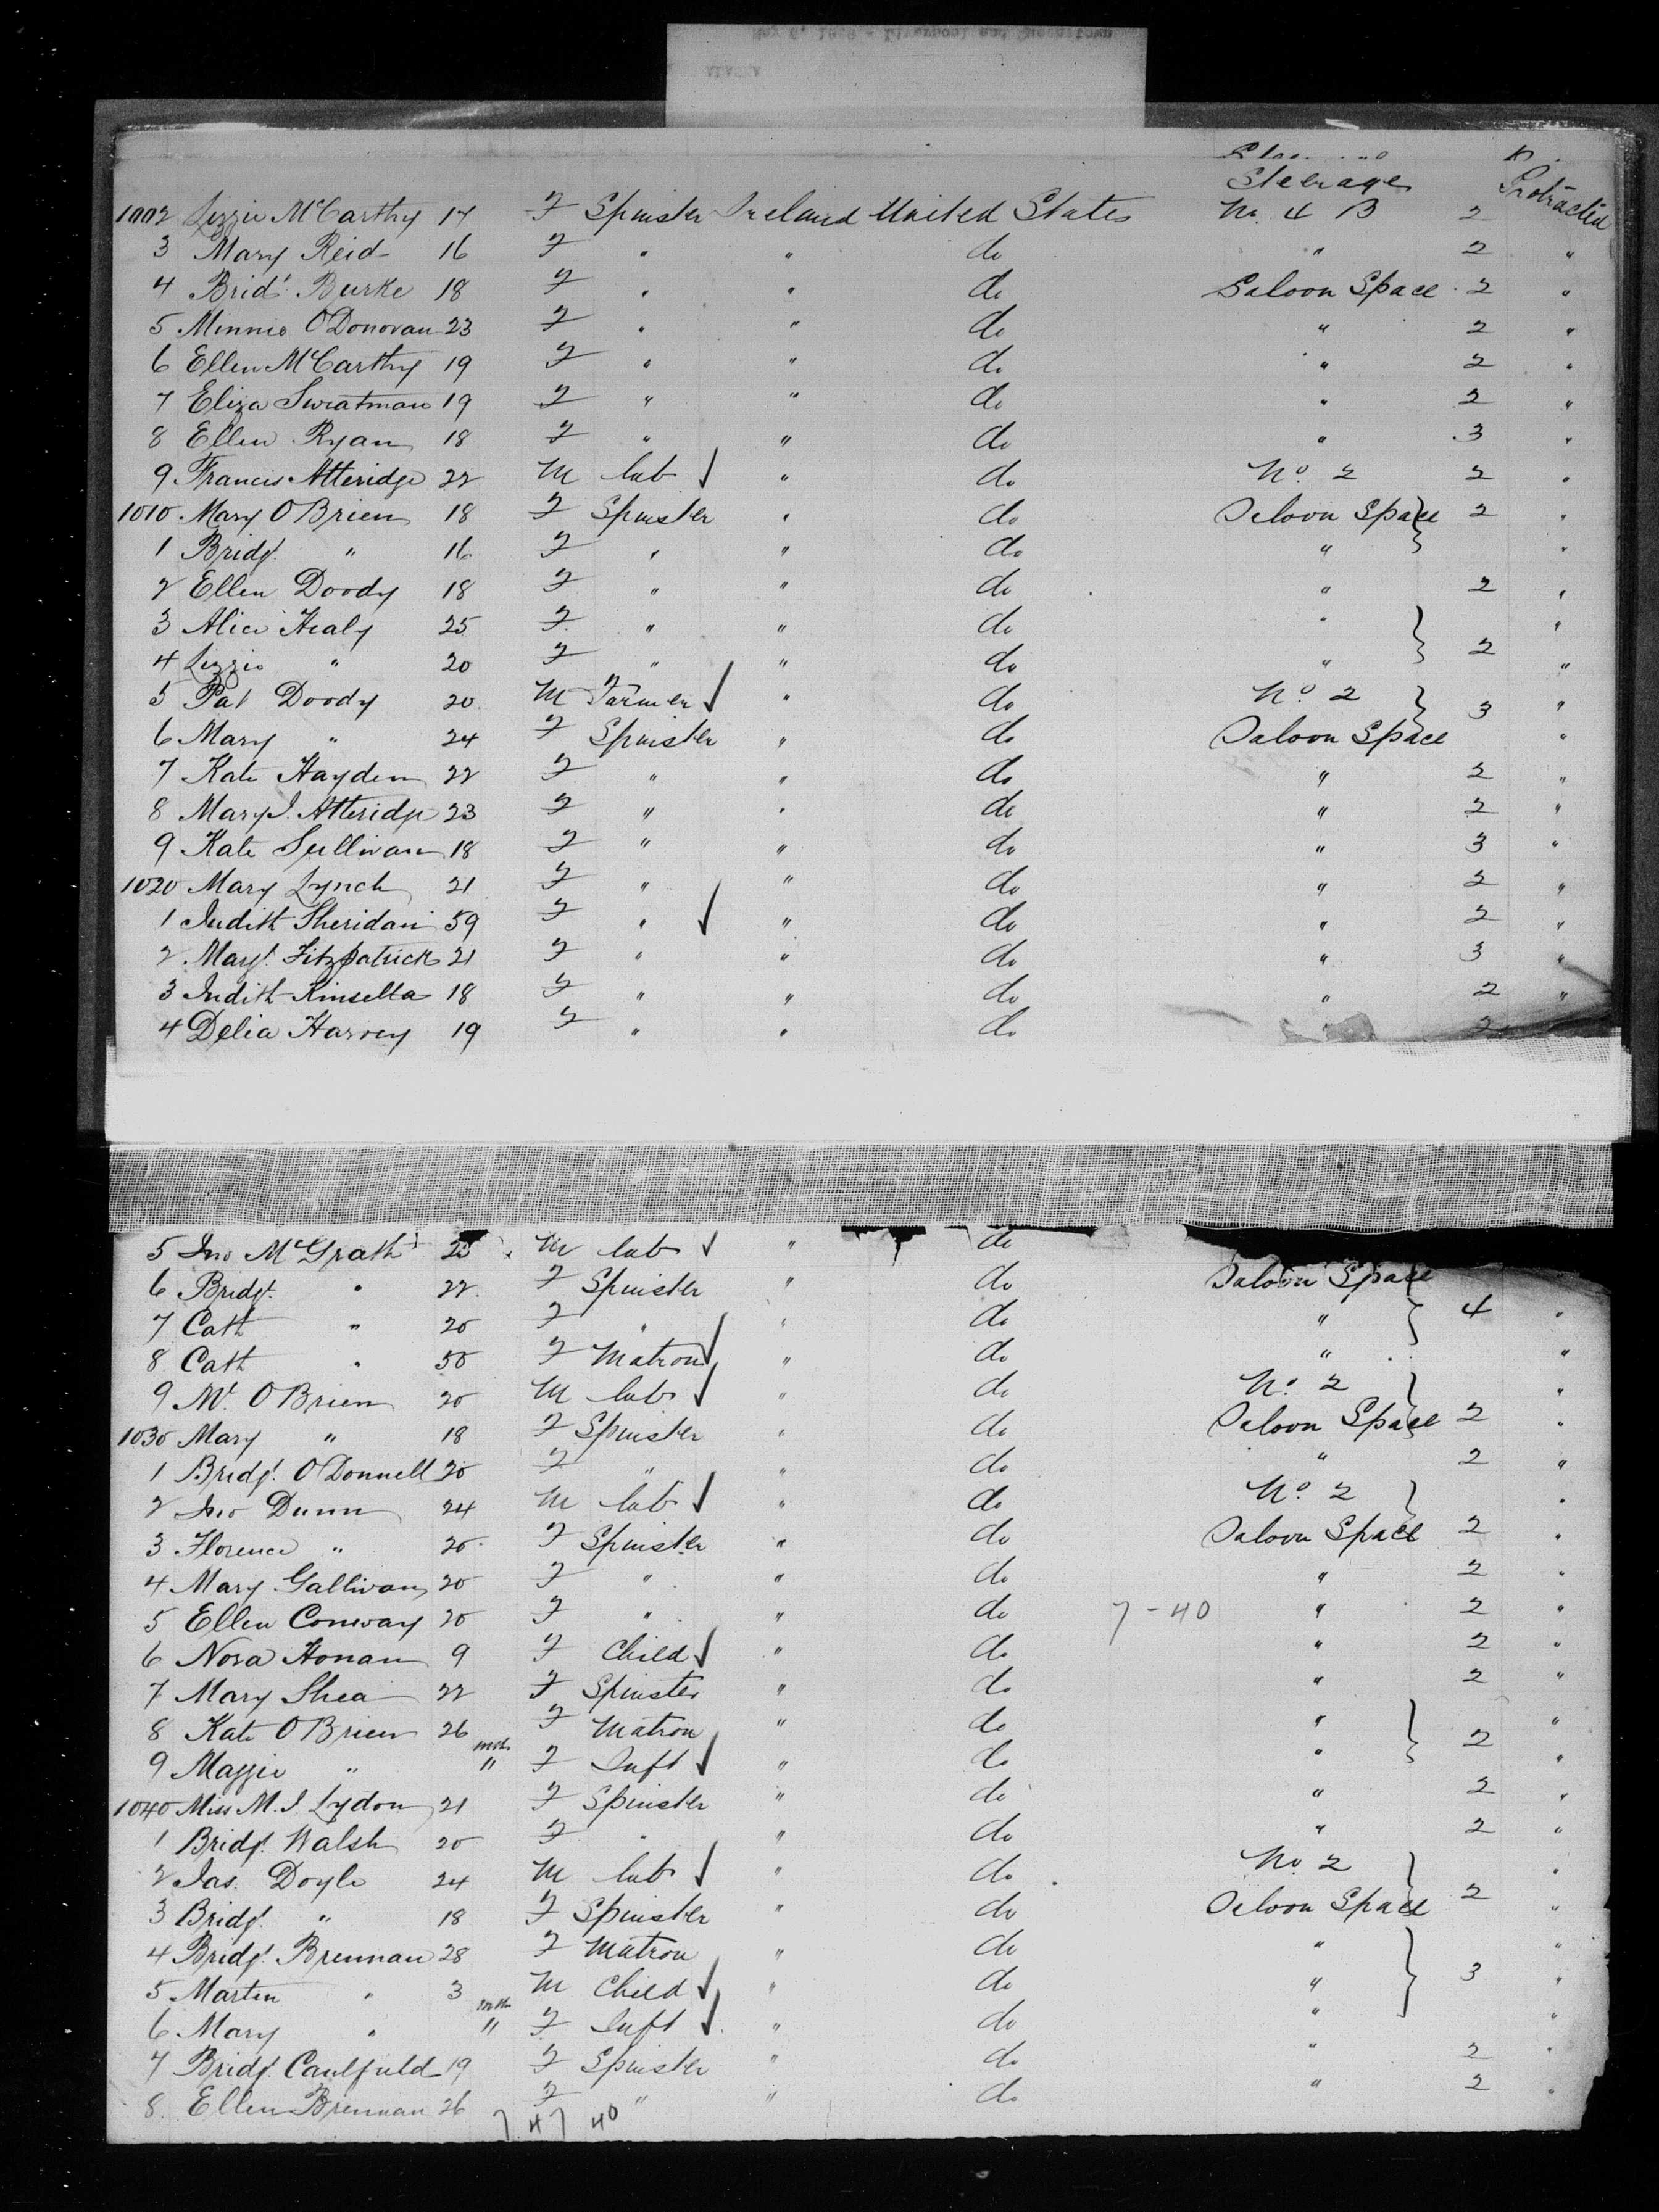 Steerage Protracted
1002 Lizzie McCarthy 17 F Spinster Ireland United States No. 4 B 2
3 Mary Reid 16 F " " do " 2 "
4 Bridt. Burke 18 F " " do Saloon Space 2 "
5 Minnie O'Donovan 23 F " " do " 2 "
6 Ellen McCarthy 19 F " " do " 2 "
7 Eliza Swratman 19 F " " do " 2 "
8 Ellen Ryan 18 F " " do " 3 "
9 Francis Atteridge 22 M lab " do No. 2 2 "
1010 Mary O'Brien 18 F Spinster " do Saloon Space 2 "
1 Bridgt. " 16 F " " do " "
2 Ellen Doody 18 F " " do " 2 "
3 Alice Healy 25 F " " do " "
4 Lizzie " 20 F " " do " 2 "
5 Pat Doody 20 M Farmer " do No. 2 3 "
6 Mary " 24 F Spinster " do Saloon Space "
7 Kate Hayden 22 F " " do " 2 "
8 Mary J. Atteridge 23 F " " do " 2 "
9 Kate Sullivan 18 F " " do " 3 "
1020 Mary Lynch 21 F " " do " 2 "
1 Judith Sheridan 59 F " " do " 2 "
2 Margt. Fitzpatrick 21 F " " do " 3 "
3 Judith Kinsella 18 F " " do " 2 "
4 Delia Harvey 19 F " " do " 2
5 Jno McGrath 25 M lab " do
6 Bridgt. " 22 F Spinster " do Saloon Space
7 Cath " 20 F " " do " 4 "
8 Cath " 50 F Matron " do " "
9 Mt. O'Brien 20 M lab " do No. 2 "
1030 Mary " 18 F Spinster " do Saloon Space 2 "
1 Bridgt. O'Donnell 20 F " " do " 2 "
2 Jno Dunn 24 M lab " do No. 2 "
3 Florence " 20 F Spinster " do Saloon Space 2 "
4 Mary Gallivan 20 F " " do " 2 "
5 Ellen Conway 20 F " " do 7-40 " 2 "
6 Nora Honan 9 F Child " do " 2 "
7 Mary Shea 22 F Spinster " do " 2 "
8 Kate O'Brien 26 F Matron " do " "
9 Maggie " mths 11 F Inft " do " 2 "
1040 Miss M. J. Lydon 21 F Spinster " do " 2 "
1 Bridgt. Walsh 20 F " " do " 2 "
2 Jas. Doyle 24 M lab " do No. 2 "
3 Bridgt. " 18 F Spinster " do Saloon Space 2 "
4 Bridgt. Brennan 28 F Matron " do " "
5 Martin " 3 M Child " do " 3 "
6 Mary " mths 11 F Inft " do " "
7 Bridgt. Caulfield 19 F Spinster " do " 2 "
8 Ellen Brennan 26 F " " do " 2 "
7 47 40